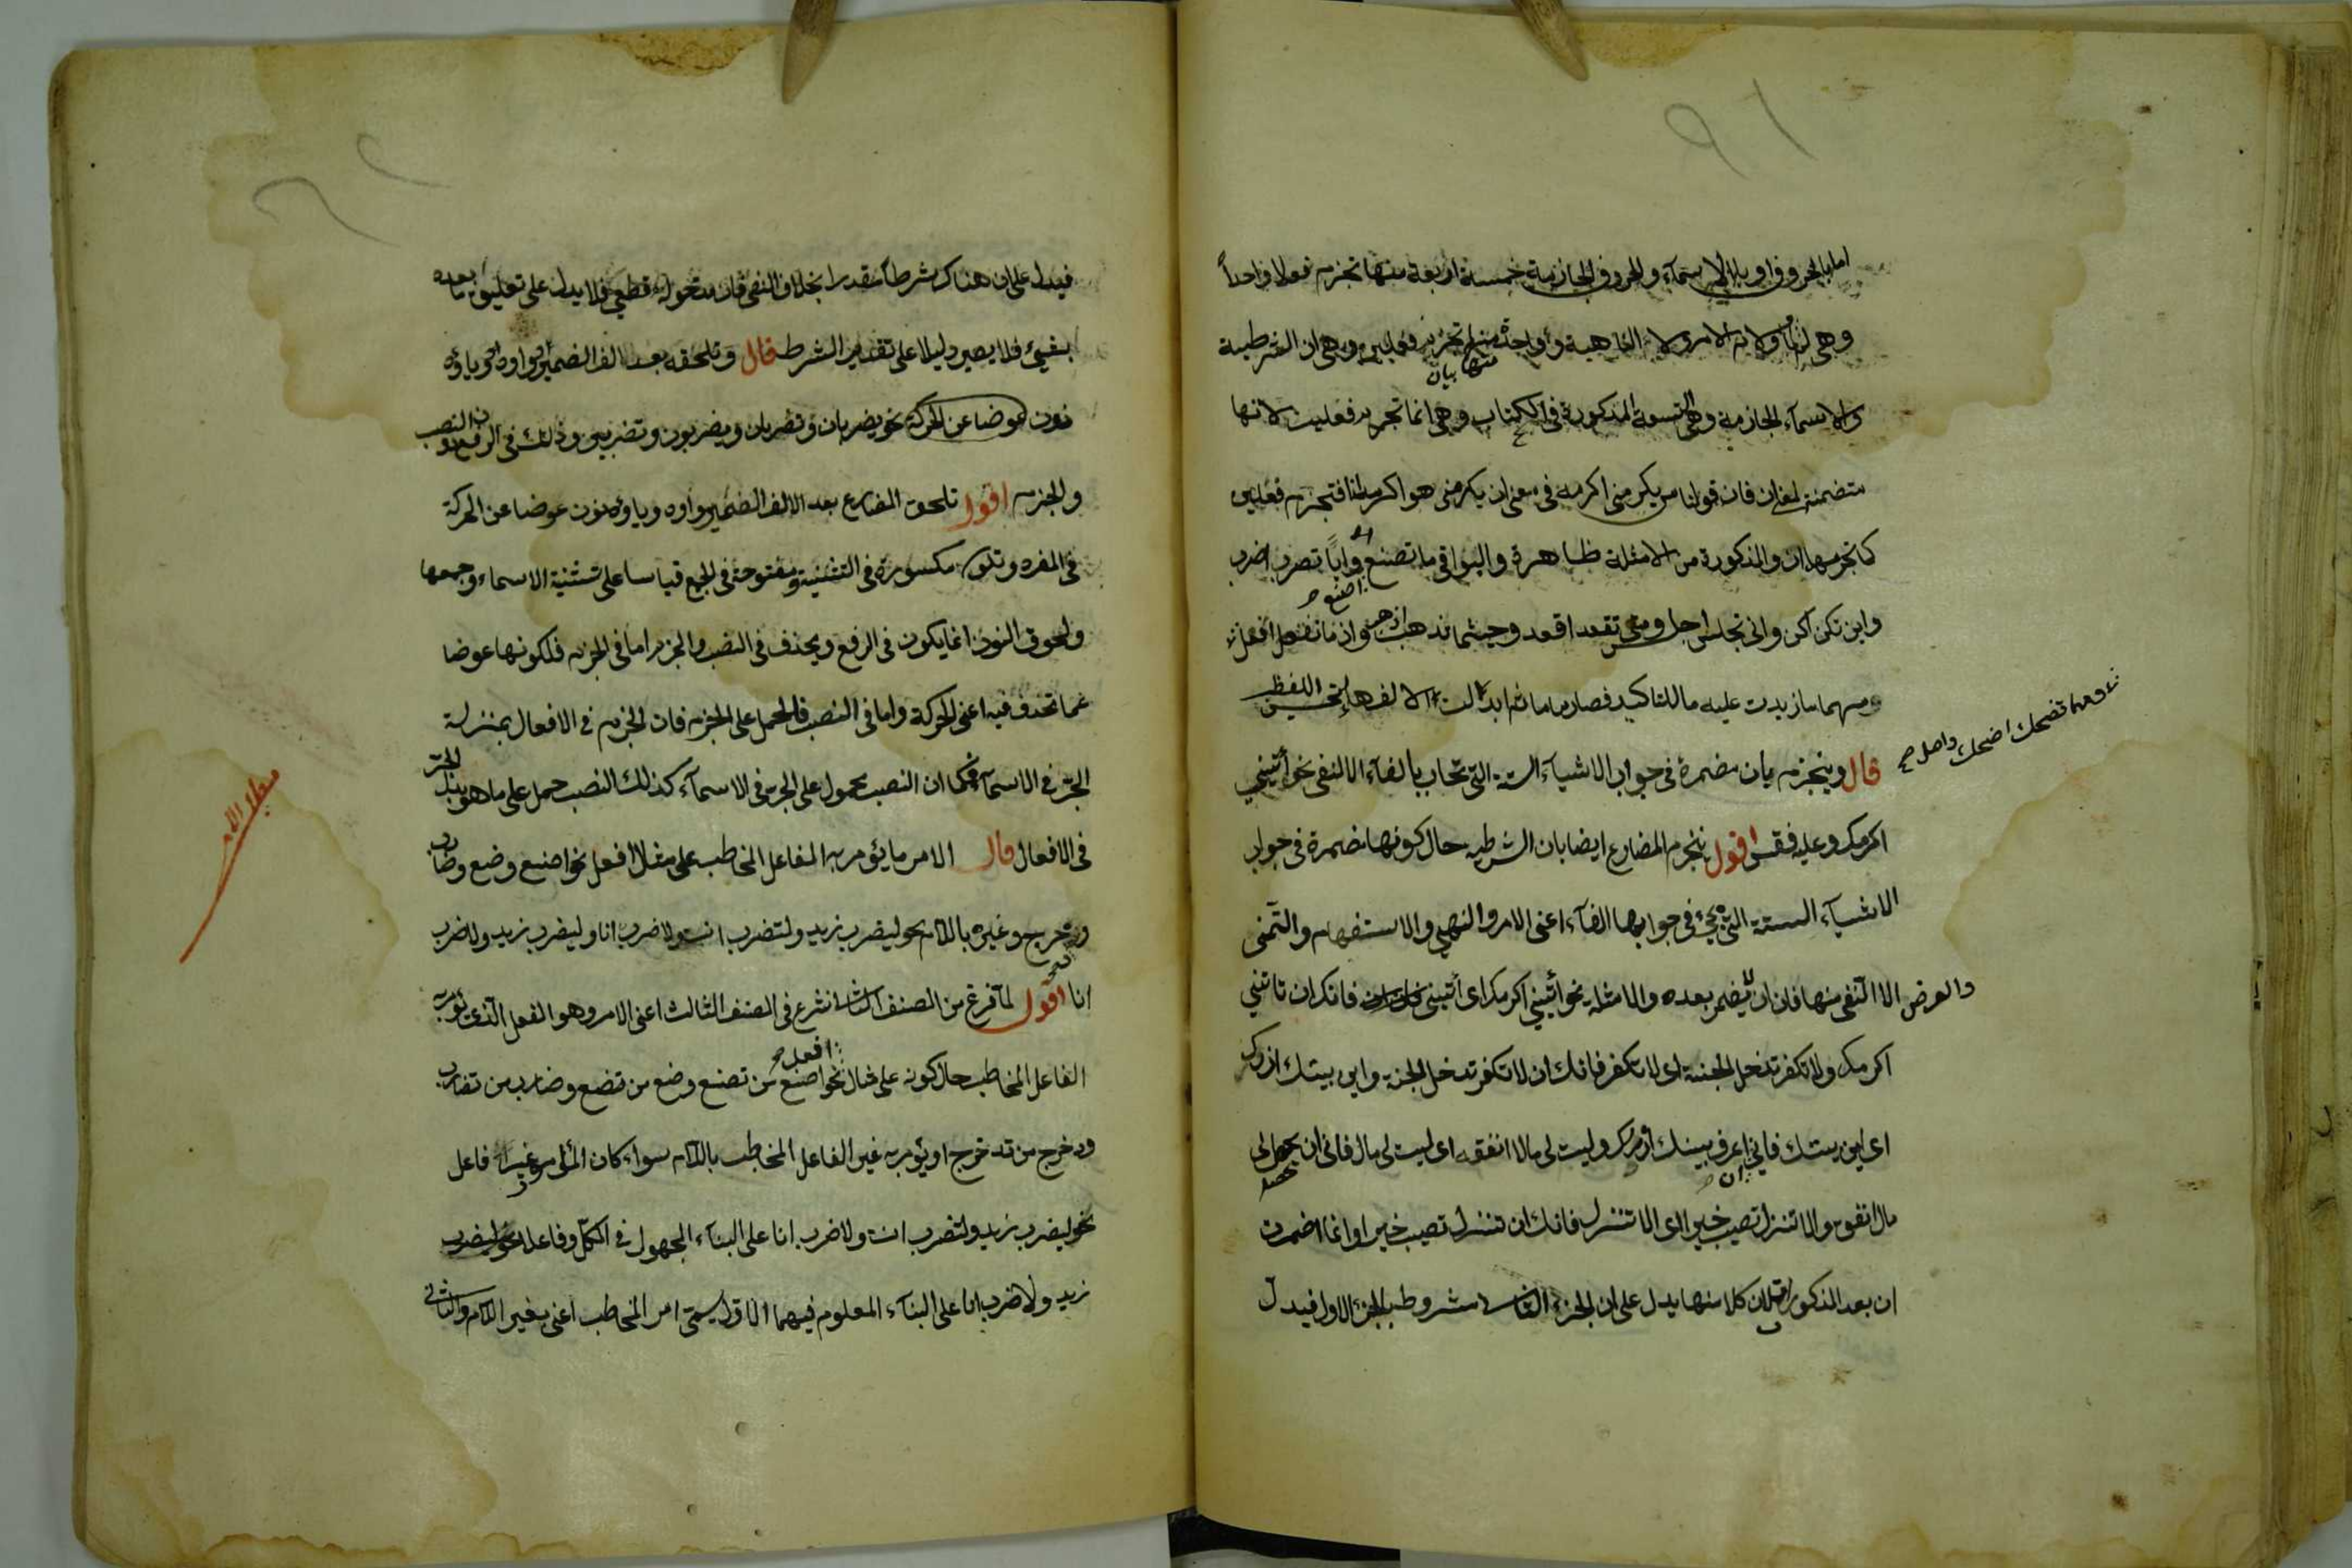 اما بالحروف او بالاسماء والحروف الجازمة خمسة اربعة منها تجزم فعلا واحداً
وهى لم ولما ولام الامر ولا الناهية وواحدة منها تجزم فعلين وهى ان الشرطية
والاسماء الجازمة وهى التسعة المذكورة فى الكتاب وهى انما تجزم فعلين لانها
متضمنة لمعنى ان فان قولنا من يكرمنى اكرمه فى معنى ان يكرمنى هو اكرمه انا فتجزم فعلين
كما تجزمهما ان والمذكورة من الامثلة ظاهرة والبواقى ما تصنع اصنع واياً تضرب اضرب
واين تكن اكن وانى تجلس اجلس ومتى تقعد اقعد وحيثما تذهب اذهب واذ ما تفعل افعل
ومهما تضحك اضحك واصل
مهما ما زيدت عليه ما للتاكيد فصار ماما ثم ابدلت الالف هاء لتحسين اللفظ
قال وينجزم بان مضمرة فى جواب الاشياء الستة التى تجاب بالفاء الا النفى نحو أتينى
اكرمك وعليه فقس اقول ينجزم المضارع ايضا بان الشرطية حال كونها مضمرة فى جواب
الاشياء الستة التى تجئ فى جوابها الفاء اعنى الامر والنهى والاستفهام والتمنى
والعرض الا النفى منها فان ان لا يضمر بعده والامثلة نحو أتينى اكرمك اى أتينى فانك ان تاتنى
اكرمك ولا تكفر تدخل الجنة اى لا تكفر فانك ان لا تكفر تدخل الجنة واين بيتك ازرك
اى اين بيتك فانى ان اعرف بيتك ازرك وليت لى مالا انفقه اى ليت لى مال فانى ان يحصل لى
مال انفقه والا تنزل تصيب خيرا اى الا تنزل فانك ان تنزل تصيب خيرا وانما اضمرت
ان بعد المذكورات لان كلا منها يدل على ان الجزء الثانى مشروط بالجزء الاول فيدل
فيدل على ان هناك شرطا مقدرا بخلاف النفى فان مدخوله قطعى فلا يدل على تعليق ما بعده
بشئ فلا يصير دليلا على تقدير الشرط قال وتلحقه بعد الف الضمير وواوه وياؤه
نون عوضا عن الحركة نحو يضربان وتضربان ويضربون وتضربين وذلك فى الرفع دون النصب
والجزم اقول تلحق المضارع بعد الالف الضمير وواوه وياؤه نون عوضا عن الحركة
فى المفرد وتكون مكسورة فى التثنية ومفتوحة فى الجمع قياسا على تثنية الاسماء وجمعها
ولحوق النون انما يكون فى الرفع ويحذف فى النصب والجزم اما فى الجزم فلكونها عوضا
عما تحذف فيه اعنى الحركة واما فى النصب فالحمل على الجزم فان الجزم فى الافعال بمنزلة
الجرّ فى الاسماء فكما ان النصب محمول على الجر فى الاسماء كذلك النصب حمل على ما هو بدل الجرّ
فى الافعال قال الامر ما يؤمر به الفاعل المخاطب على مثال افعل نحو اصنع وضع وضارب
ودحرج وغيره باللام نحو ليضرب زيد ولتضرب انت ولاضرب انا وليضرب زيد ولاضرب
انا اقول لما فرغ من الصنف الثانى شرع فى الصنف الثالث اعنى الامر وهو الفعل الذى يؤمر به
الفاعل المخاطب حال كونه على مثال افعل نحو اصنع من تصنع وضع من تضع وضارب من تضارب
ودحرج من تدحرج او يؤمر به غير الفاعل المخاطب باللام سواء كان المأمور غير فاعل
نحو ليضرب زيد ولتضرب انت ولاضرب انا على البناء المجهول فى الكل وفاعلا نحو ليضرب
زيد ولاضرب انا على البناء المعلوم فيهما الاول يسمى امر المخاطب اعنى بغير اللام والثانى